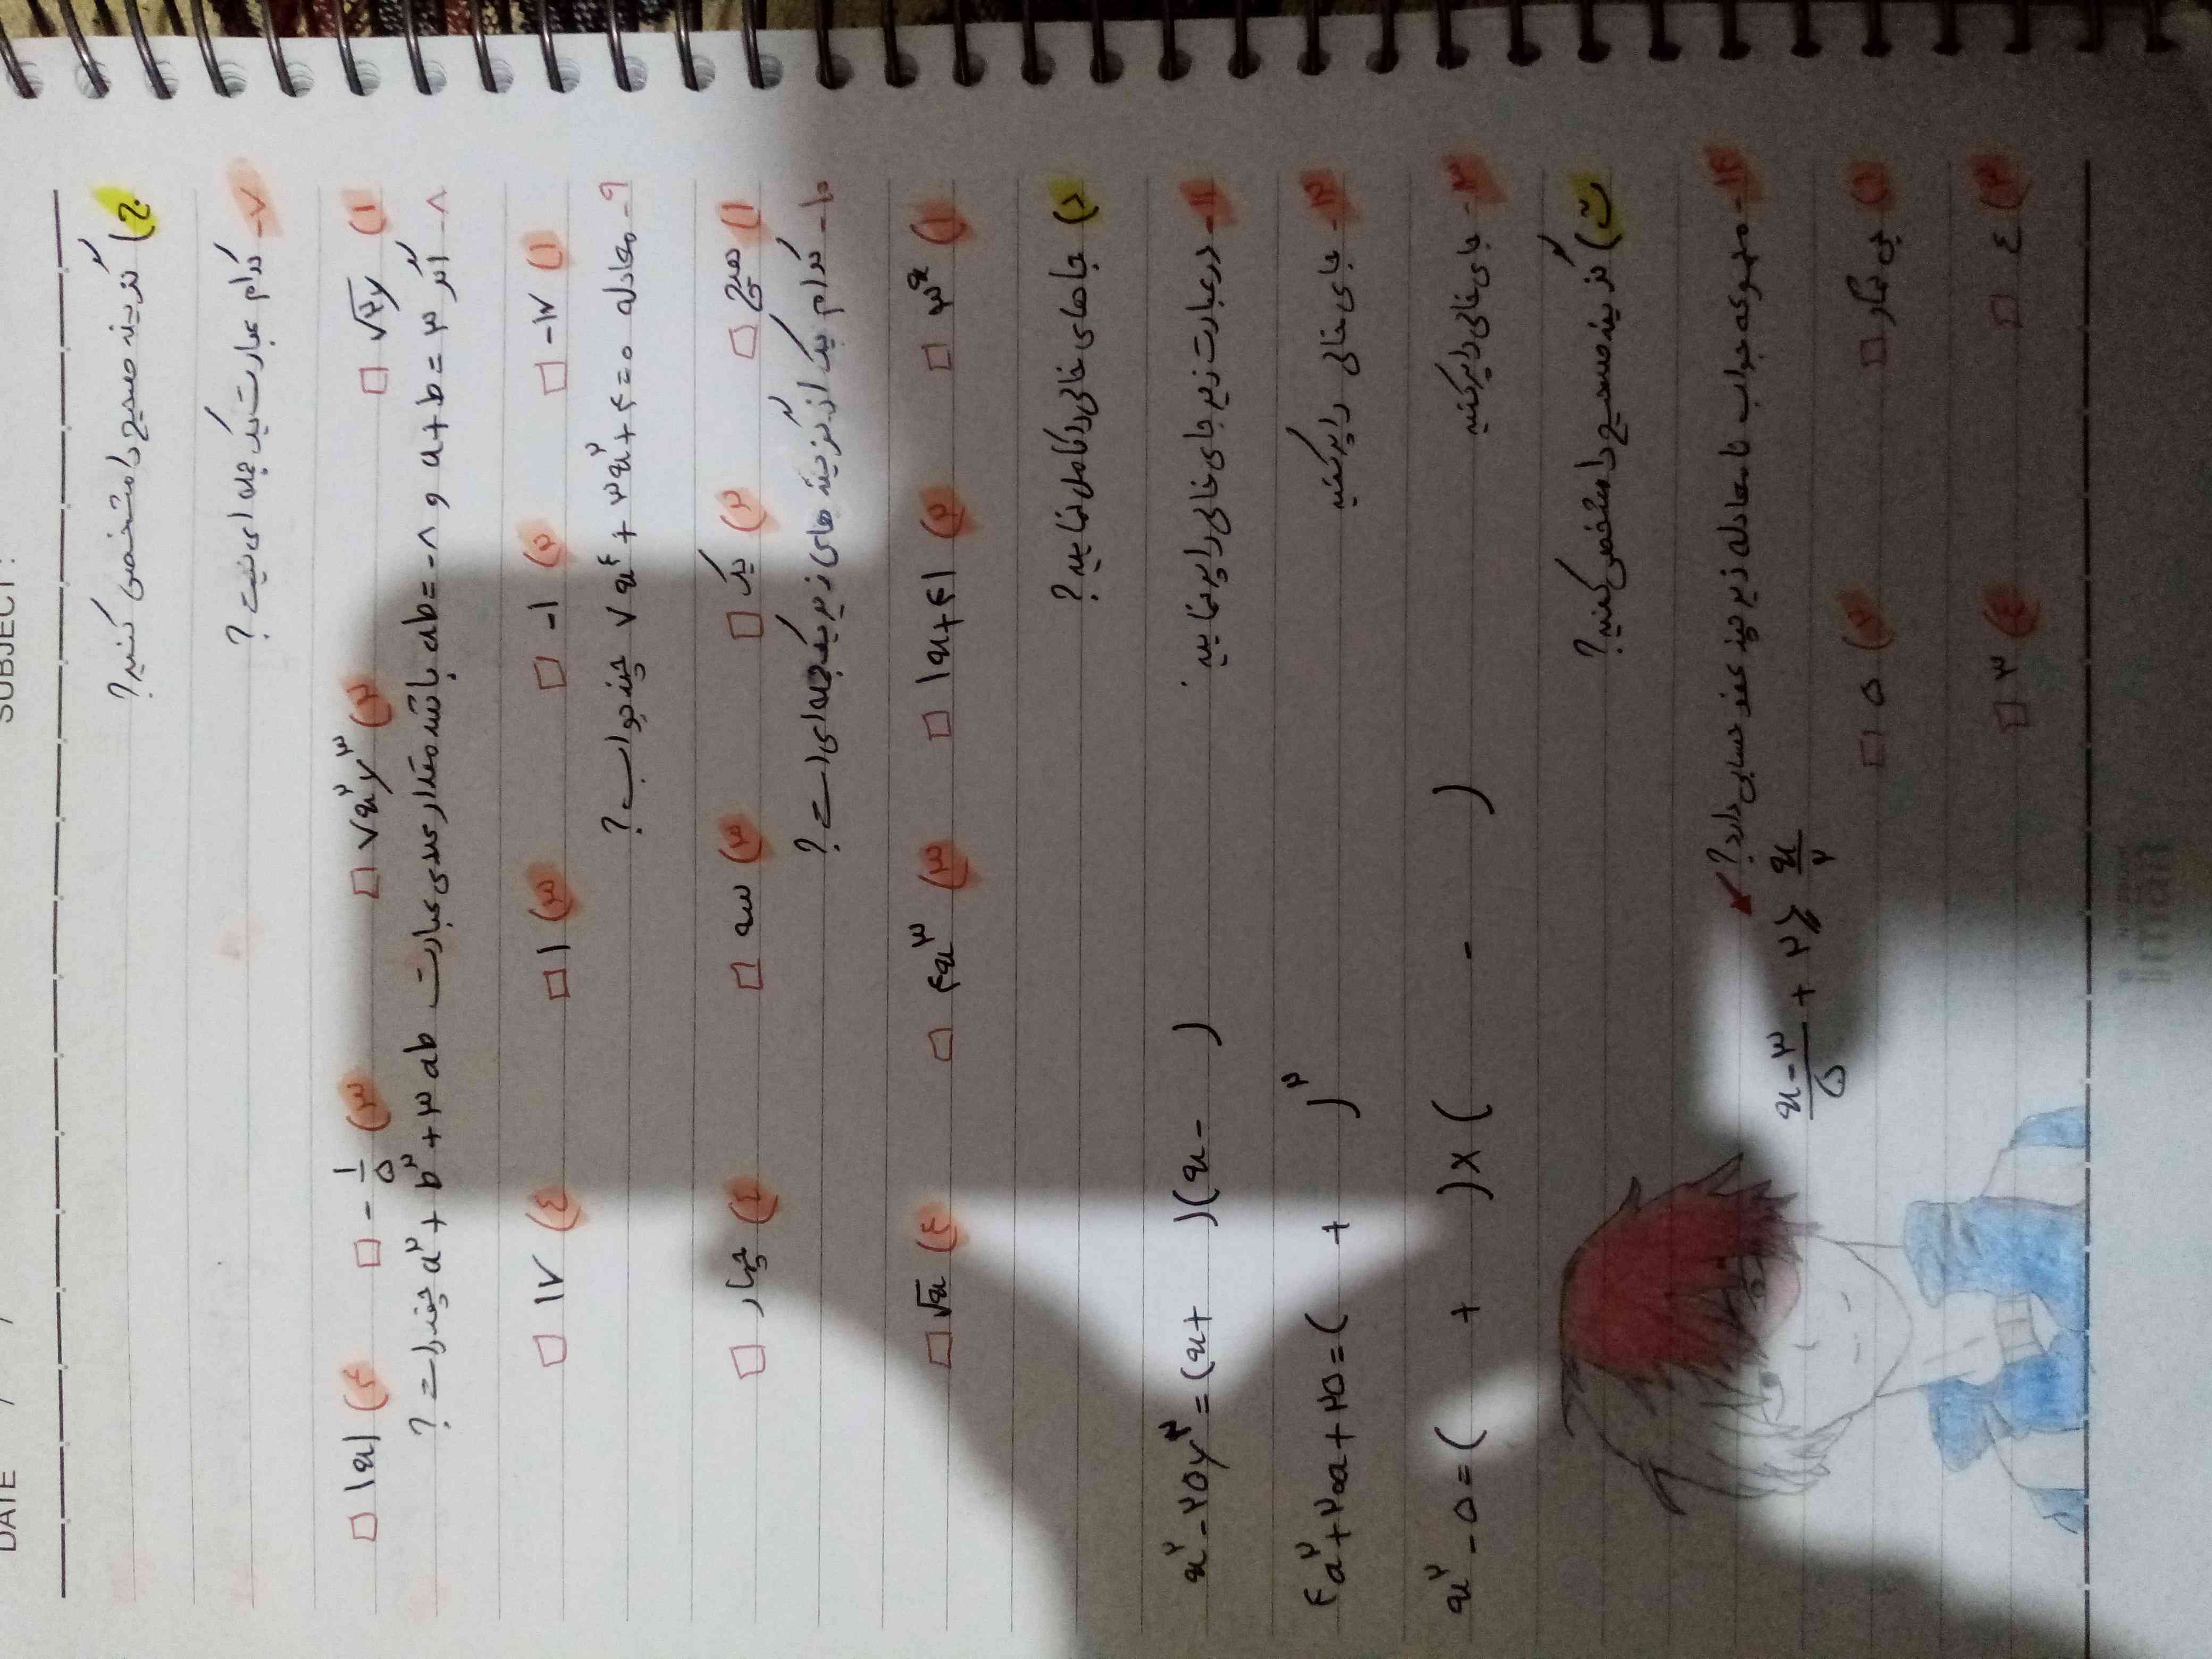 SUBJECT:
DATE / /
ج) گزینه صحیح را مشخص کنید؟
۷- کدام عبارت یک جمله ای نیست؟
۱) □ √۳y ۲) □ ۷x²y³ ۳) □ -۱/۵ ۴) □ |x|
۸- اگر a+b=۳ و ab=-۸ باشد مقدار عددی عبارت a²+b²+۳ab چقدر است؟
۱) □ -۱۷ ۲) □ -۱ ۳) □ ۱ ۴) □ ۱۷
۹- معادله ۷x⁴+۳x²+۴=۰ چند جواب؟
۱) هیچ □ ۲) یک □ ۳) سه □ ۴) چهار □
۱۰- کدام یک از گزینه های زیر یک جمله ای است؟
۱) □ ۳ˣ ۲) □ |x+۴| ۳) □ ۴x³ ۴) □ √x
د) جاهای خالی را کامل نمایید؟
۱۱- در عبارت زیر جای خالی را پر نمایید.
x²-۲۵y²=(x+ )(x- )
۱۲- جای خالی را پر کنید
۴a²+۲۰a+۲۵=( + )²
۱۳- جای خالی را پر کنید
x²-۵=( + )×( - )
ت) گزینه صحیح را مشخص کنید؟
۱۴- مجموعه جواب نامعادله زیر چند عضو حسابی دارد؟
(x-۳)/۵ + ۲ ≥ x/۲
۱) بی شمار □ ۲) ۵ □
۳) ۴ □ ۴) ۳ □
iman